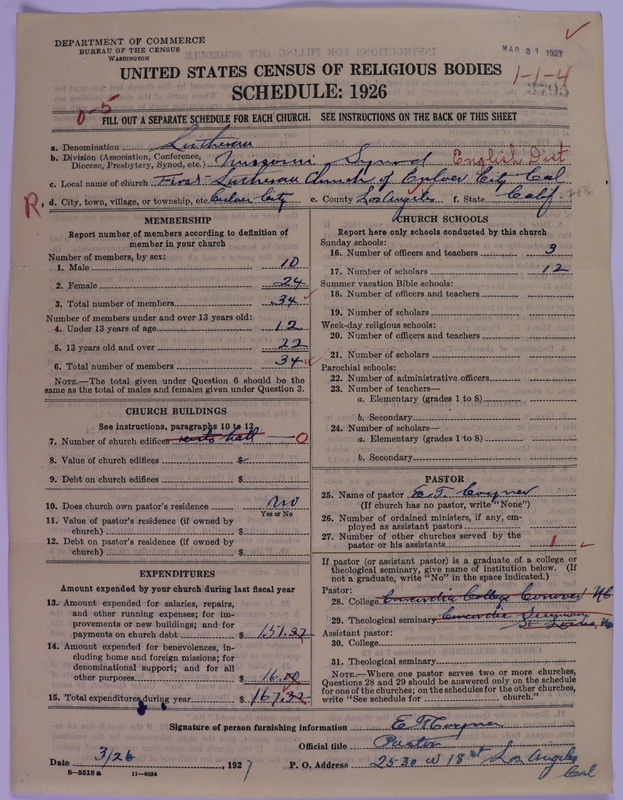 DEPARTMENT OF COMMERCE
BUREAU OF THE CENSUS
WASHINGTON
MAR 31 1927
UNITED STATES CENSUS OF RELIGIOUS BODIES
1-1-4
SCHEDULE: 1926
0-5
FILL OUT A SEPARATE SCHEDULE FOR EACH CHURCH. SEE INSTRUCTIONS ON THE BACK OF THIS SHEET
a. Denomination Lutheran
b. Division (Association, Conference, Diocese, Presbytery, Synod, etc.) Missouri Synod English Dist
c. Local name of church First Lutheran Church of Culver City Cal
R. d. City, town, village, or township, etc. Culver City e. County Los Angeles f. State Calif
MEMBERSHIP
Report number of members according to definition of
member in your church
Number of members, by sex:
1. Male 10
2. Female 24
3. Total number of members 34
Number of members under and over 13 years old:
4. Under 13 years of age 12
5. 13 years old and over 22
6. Total number of members 34
NOTE.—The total given under Question 6 should be the
same as the total of males and females given under Question 3.
CHURCH BUILDINGS
See instructions, paragraphs 10 to 12
7. Number of church edifices rents hall 0
8. Value of church edifices $
9. Debt on church edifices $
10. Does church own pastor's residence no
Yes or No
11. Value of pastor's residence (if owned by
church) $
12. Debt on pastor's residence (if owned by
church) $
EXPENDITURES
Amount expended by your church during last fiscal year
13. Amount expended for salaries, repairs,
and other running expenses; for im-
provements or new building; and for
payments on church debt $ 151.32
14. Amount expended for benevolences, in-
cluding home and foreign missions; for
denominational support; and for all
other purposes $ 16.00
15. Total expenditures during year $ 167.32
CHURCH SCHOOLS
Report here only schools conducted by this church
Sunday schools:
16. Number of officers and teachers 3
17. Number of scholars 12
Summer vacation Bible schools:
18. Number of officers and teachers
19. Number of scholars
Week-day religious schools:
20. Number of officers and teachers
21. Number of scholars
Parochial schools:
22. Number of administrative officers
23. Number of teachers—
a. Elementary (grades 1 to 8)
b. Secondary
24. Number of scholars—
a. Elementary (grades 1 to 8)
b. Secondary
PASTOR
25. Name of pastor E. T. Coyner
(If church has no pastor, write "None")
26. Number of ordained ministers, if any, em-
ployed as assistant pastors
27. Number of other churches served by the
pastor or his assistants 1
If pastor (or assistant pastor) is a graduate of a college or
theological seminary, give name of institution below. (If
not a graduate, write "No" in the space indicated.)
Pastor:
28. College Concordia College Conover
29. Theological seminary Concordia Seminary
St Louis, Mo
Assistant pastor:
30. College
31. Theological seminary
NOTE.—Where one pastor serves two or more churches,
Questions 28 and 29 should be answered only on the schedule
for one of the churches; on the schedules for the other churches,
write "See schedule for church."
Signature of person furnishing information E T Coyner
Official title Pastor
Date 3/26, 1927 P. O. Address 2530 W 18 st Los Angeles
Cal
8—5518 a 11—9554